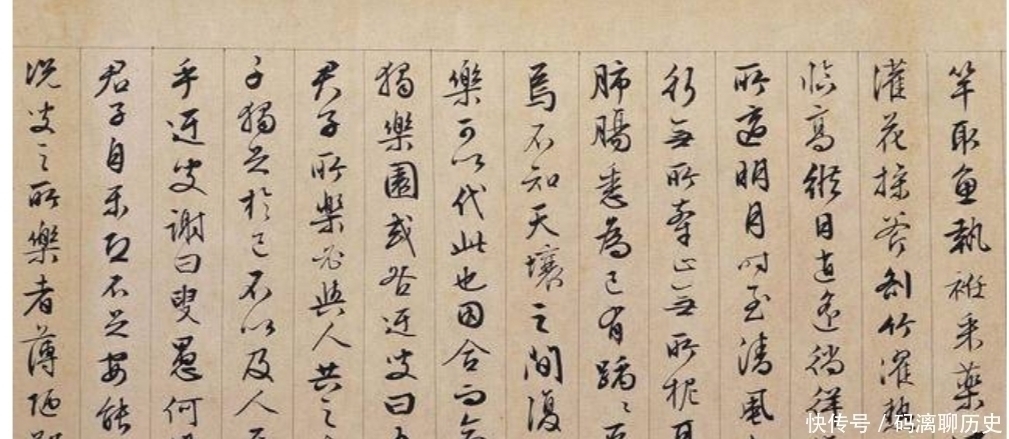 竿取魚執衽采藥
灌花操斧剖竹濯熱
臨高縱目逍遙徜徉
所適明月時至清風
行無所牽止無所柅耳
肺腸悉為己有踽〻
焉不知天壤之間復
樂可以代此也因合而
獨樂園或咎迂叟曰
君子所樂必與人共之
子獨足於己不以及人
乎迂叟謝曰叟愚何
君子自樂恐不足安能
況叟之所樂者薄陋
快传号/码漓聊历史